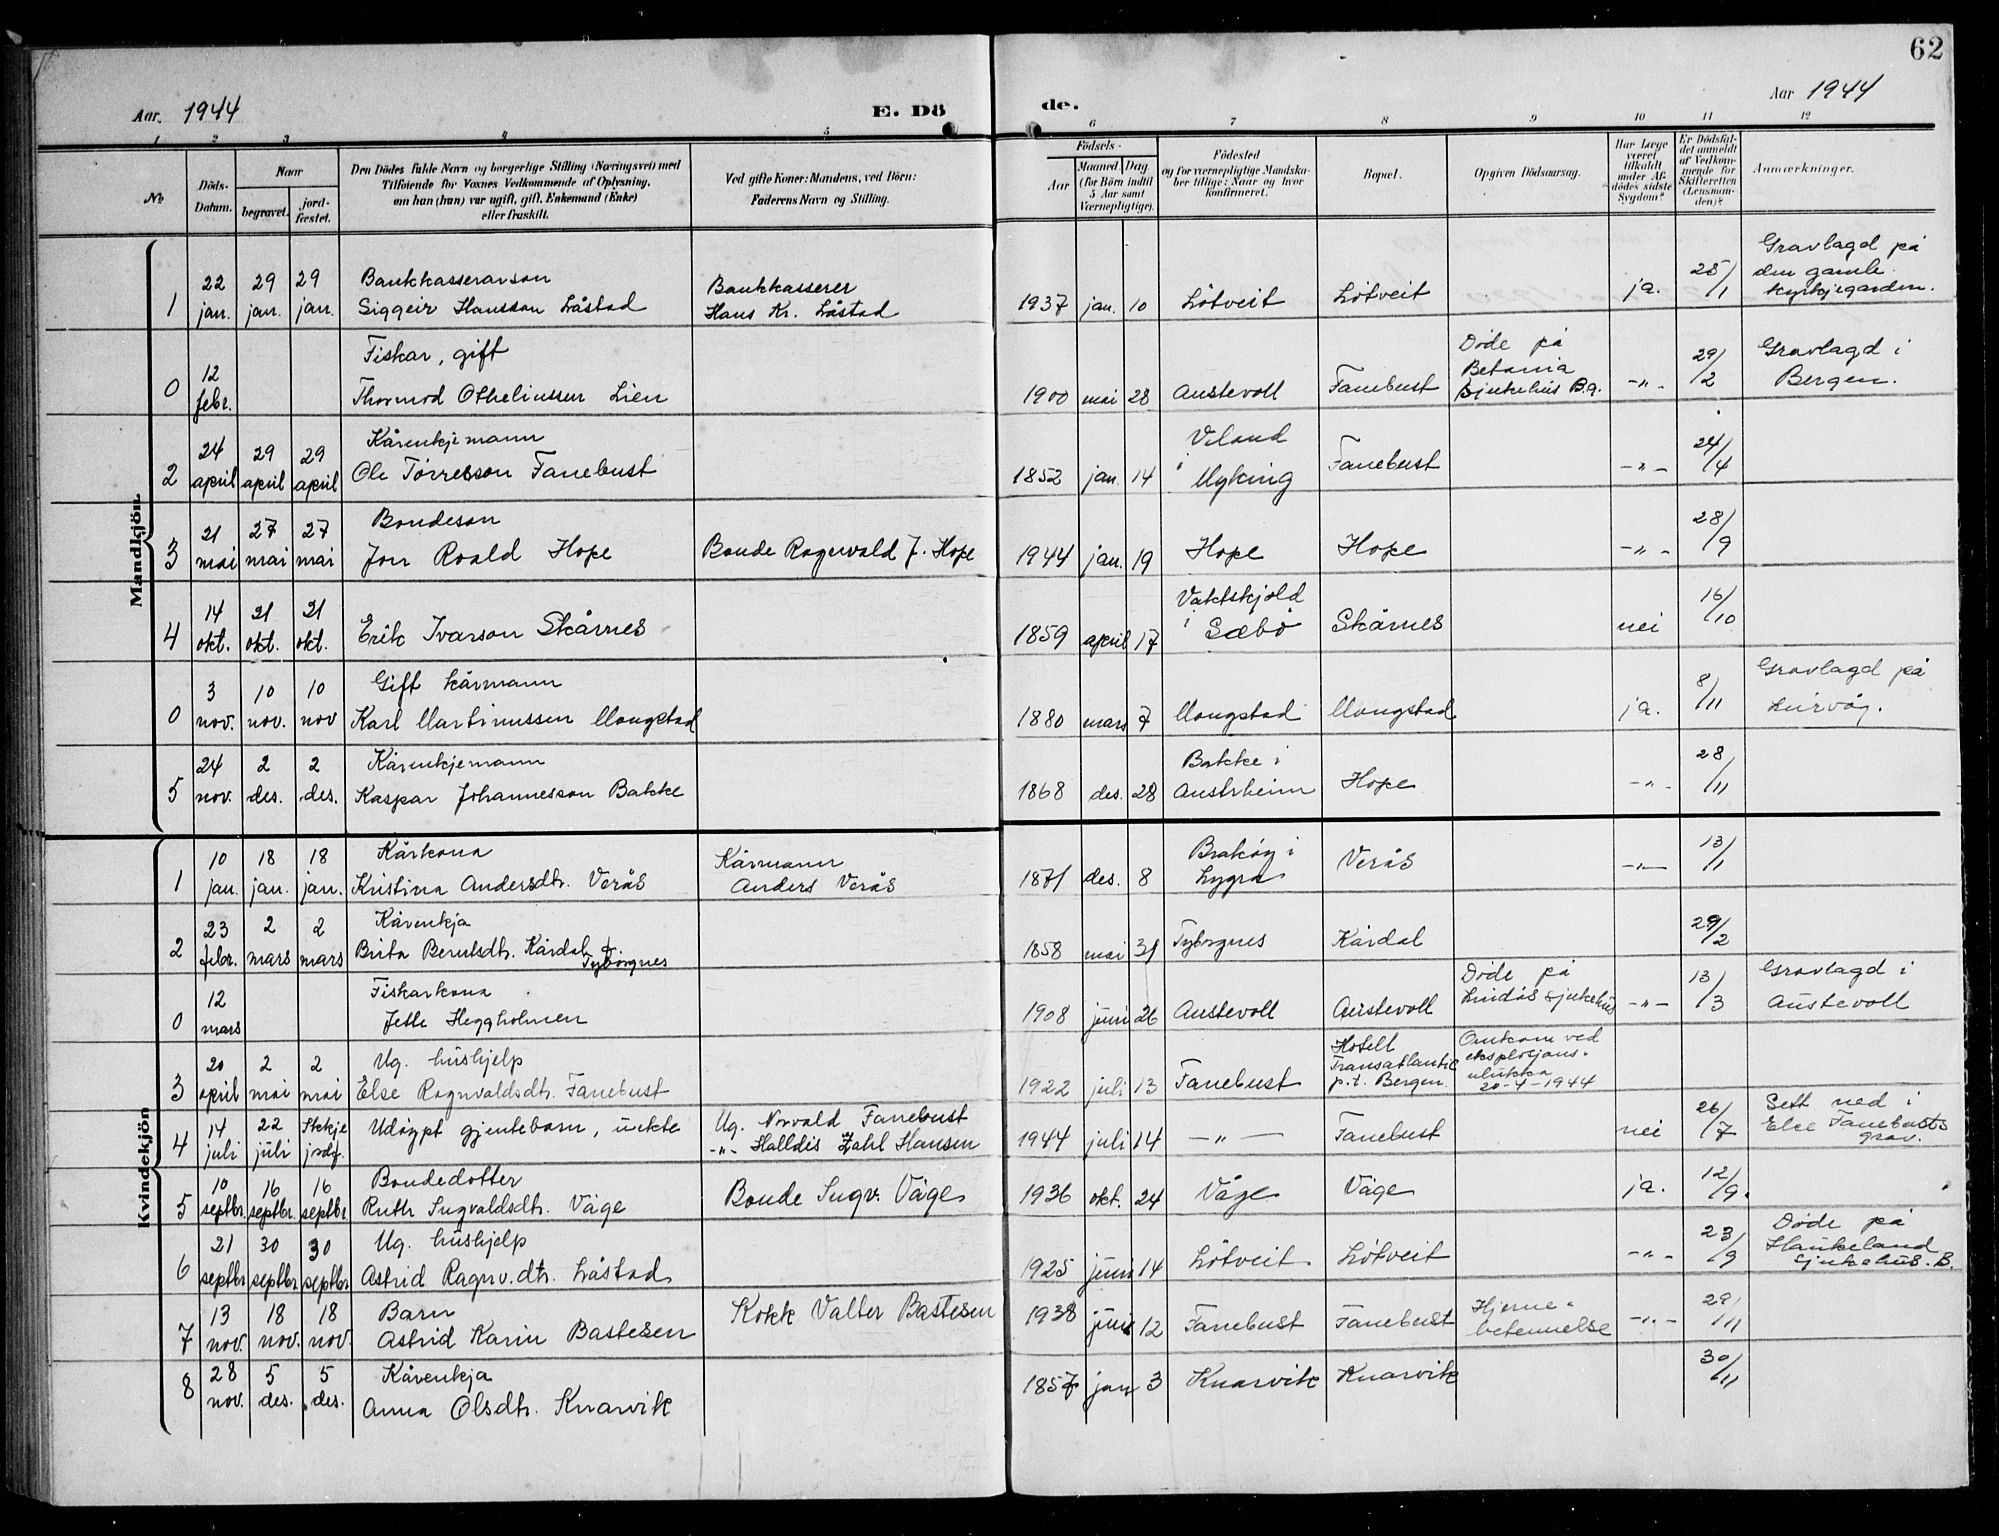 62
Aar. 1944
E. Dö
de.
Aar 1944
1 2 3 4 5 6 7 8 9 10 11 12
№
Döds-Datum.
Naar
begravet.
jord-fæstet.
Den Dödes fulde Navn og borgerlige Stilling (Næringsvei) med
Tilföiende for Voxnes Vedkommende af Oplysning,
om han (hun) var ugift, gift, Enkemand (Enke)
eller fraskilt.
Ved gifte Koner: Mandens, ved Börn:
Faderens Navn og Stilling.
Födsels-
Aar
Maaned Dag
(for Börn indtil
5 Aar samt
Værnepligtige).
Födested
og for værnepligtige Mandska-
ber tillige: Naar og hvor
konfirmeret.
Bopæl.
Opgiven Dödsaarsag.
Har Læge
været
tilkaldt
under Af-
dödes sidste
Sygdom?
Er Dödsfal-
det anmeldt
af Vedkom-
mende for
Skifteretten
(Lensman-
den)?
Anmærkninger.
Mandkjön.
1 22 jan. 29 jan. 29 jan. Bankkasserarson Siggeir Hansson Låstad Bankkasserer Hans Kr. Låstad 1937 jan. 10 Lötveit Lötveit ja. 25/1 Gravlagd på den gamle kyrkjegarden.
0 12 febr. Fiskar, gift Thormod Otheliussen Lien 1900 mai 28 Austevoll Fanebust Döde på Betania Sjukehus B.g. -„- 29/2 Gravlagd i Bergen.
2 24 april 29 april 29 april Kårenkjemann Ole Törresson Fanebust 1852 jan. 14 i Myking Fanebust -„- 24/4
3 21 mai 27 mai 27 mai Bondeson Jon Roald Hope Bonde Ragnvald J. Hope 1944 jan. 19 Hope Hope -„- 28/9
4 14 okt. 21 okt. 21 okt. Erik Ivarson Skårnes 1859 april 17 Vaktskjold i Sæbö Skårnes nei 16/10
0 3 nov. 10 nov. 10 nov Gift kårmann Karl Martinussen Mongstad 1880 mars 7 Mongstad Mongstad ja. 8/11 Gravlagd på Lurvåg.
5 24 nov. 2 des. 2 des. Kårenkjemann Kaspar Johannesson Bakke 1868 des. 28 Bakke i Austrheim Hope -„- 28/11
Kvindekjön
1 10 jan. 18 jan. 18 jan. Kårkona Kristina Andersdtr. Verås Kårmann Anders Verås 1871 des. 8 i Lygra Verås -„- 13/1
2 23 febr. 2 mars 2 mars Kårenkja Brita Berntsdtr. Kårdal f. Tyborgnes 1858 mai 31 Tyborgnes Kårdal 29/2
0 12 mars Fiskarkona Jette Heggholmen 1908 juni 26 Austevoll Austevoll Döde på Lindås sjukehus -„- 13/3 Gravlagd i Austevoll
3 20 april 2 mai 2 mai Ug. hushjelp Else Ragnvaldsdtr. Fanebust 1922 juli 13 Fanebust Hotell Transatlantic p.t. Bergen. Omkom ved eksplosjons-ulukka 20-4-1944
4 14 juli 22 juli Ikkje jrdf. Udöypt gjentebarn, uekte Ug. Norvald Fanebust -„- Halldis Zahl Hansen 1944 juli 14 -„- Fanebust nei 26/7 Sett ned i Else Fanebusts grav.
5 10 septbr. 16 septbr. 16 septbr. Bondedotter Ruth Ingvaldsdtr. Våge Bonde Ingv. Våge 1936 okt. 24 Våge Våge ja. 12/9.
6 21 septbr. 30 septbr 30 septbr. Ug. hushjelp Astrid Ragnv.dtr. Låstad 1925 juni 14 Lötveit Lötveit -„- 23/9 Döde på Haukeland Sjukehus. B.
7 13 nov. 18 nov. 18 nov. Barn Astrid Karin Bastesen Kokk Valter Bastesen 1938 juni 12 Fanebust Fanebust Hjerne-betennelse -„- 29/11
8 28 nov. 5 des. 5 des. Kårenkja Anna Olsdtr. Knarvik 1857 jan 3 Knarvik Knarvik 30/11